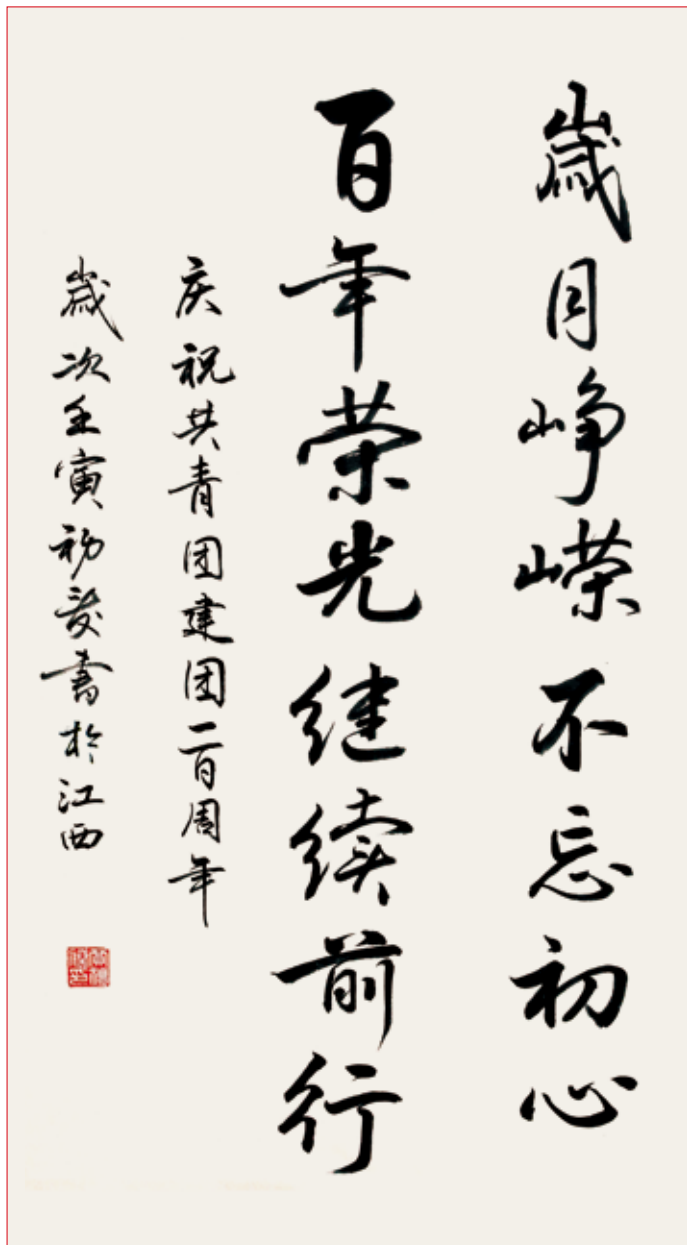 歲月峥嵘不忘初心
百年荣光继续前行
庆祝共青团建团一百周年
歲次壬寅初夏書於江西